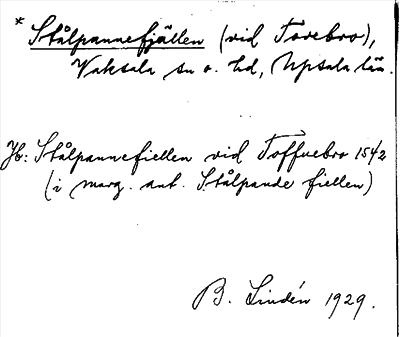 * Stålpannefjällen (vid Torebro),
Vaksala sn o. hd, Upsala län.
Jb: Stålpannefiellen vid Toffuebro 1542
(i marg. ant. Stålpande fiellen)
B. Lindén 1929.